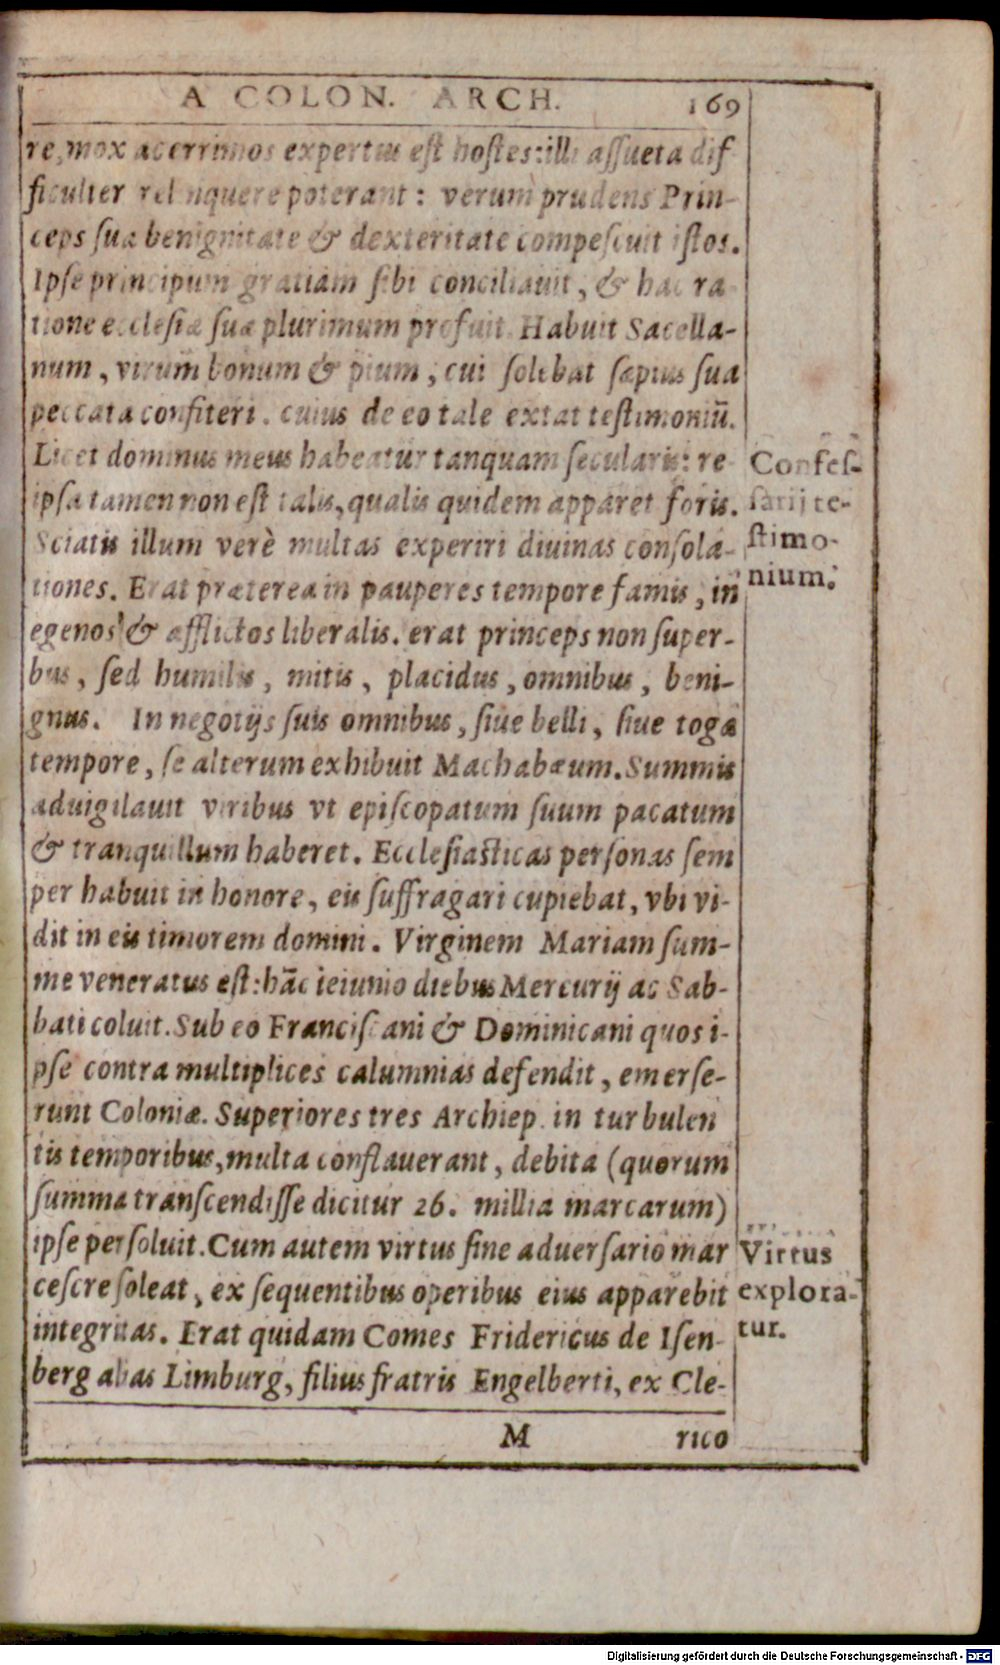 A COLON. ARCH. 169
re, mox acerrimos expertus eſt hoſtes: illi aſſueta dif
ficulter relinquere poterant: verum prudens Prin-
ceps ſua benignitate & dexteritate compeſcuit iſtos.
Ipſe principum gratiam ſibi conciliauit, & hac ra
tione eccleſiæ ſuæ plurimum profuit. Habuit Sacella-
num, virum bonum & pium, cui ſolebat ſæpius ſua
peccata confiteri. cuius de eo tale extat teſtimoniū.
Licet dominus meus habeatur tanquam ſecularis: re
ipſa tamen non eſt talis, qualis quidem apparet foris.
Sciatis illum verè multas experiri diuinas conſola-
tiones. Erat præterea in pauperes tempore famis, in
egenos & afflictos liberalis. erat princeps non ſuper-
bus, ſed humilis, mitis, placidus, omnibus, beni-
gnus. In negotijs ſuis omnibus, ſiue belli, ſiue togæ
tempore, ſe alterum exhibuit Machabæum. Summis
aduigilauit viribus vt epiſcopatum ſuum pacatum
& tranquillum haberet. Eccleſiaſticas perſonas ſem
per habuit in honore, eis ſuffragari cupiebat, vbi vi-
dit in eis timorem domini. Virginem Mariam ſum-
me veneratus eſt: hāc ieiunio diebus Mercurij ac Sab-
bati coluit. Sub eo Franciſcani & Dominicani quos i-
pſe contra multiplices calumnias defendit, emerſe-
runt Coloniæ. Superiores tres Archiep. in turbulen
tis temporibus, multa conflauerant, debita (quorum
ſumma tranſcendiſſe dicitur 26. millia marcarum)
ipſe perſoluit. Cum autem virtus ſine aduerſario mar
ceſcre ſoleat, ex ſequentibus operibus eius apparebit
integritas. Erat quidam Comes Fridericus de Iſen-
berg alias Limburg, filius fratris Engelberti, ex Cle-
M rico
Confeſ-
ſarij te-
ſtimo-
nium.
Virtus
explora-
tur.
Digitalisierung gefördert durch die Deutsche Forschungsgemeinschaft - DFG